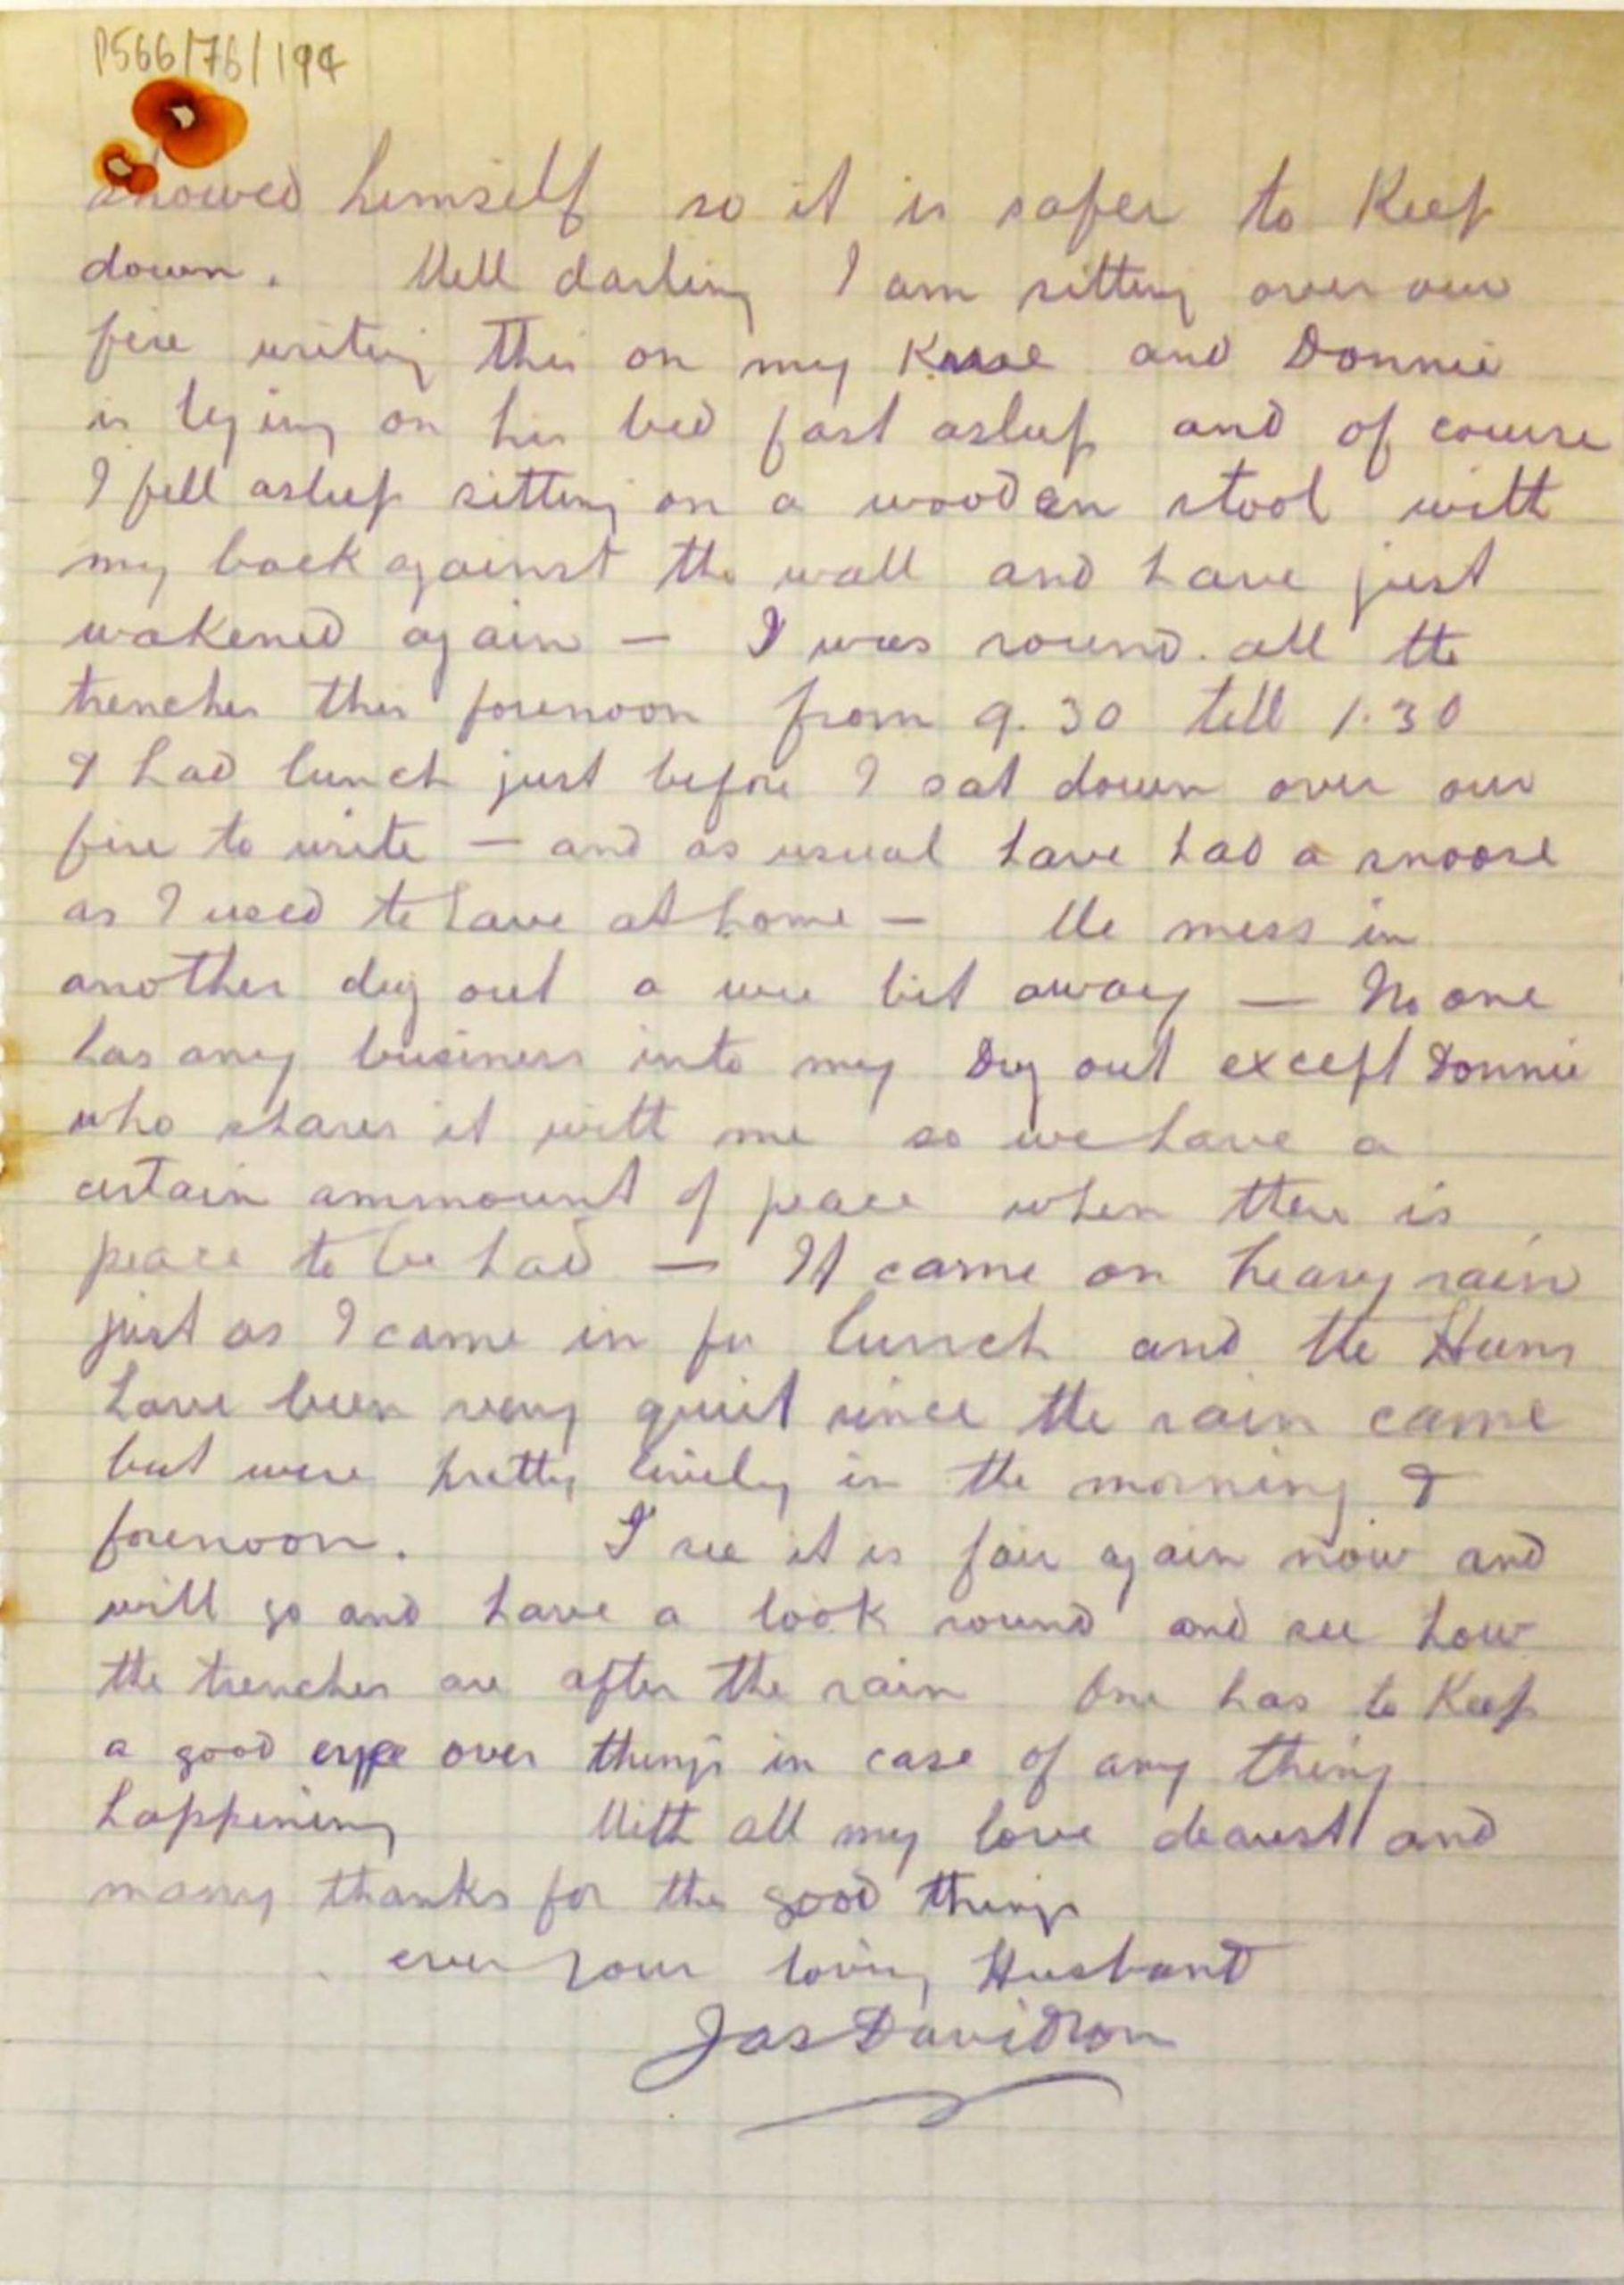 P566/76/194
showed himself so it is safer to Keep
down. Well darling I am sitting over our
fire writing this on my Knee and Donnie
is lying on his bed fast asleep and of course
I fell asleep sitting on a wooden stool with
my back against the wall and have just
wakened again — I was round all the
trenches this forenoon from 9.30 till 1.30
& had lunch just before I sat down over our
fire to write — and as usual have had a snoose
as I used to have at home — We mess in
another dug out a wee bit away — No one
has any business into my Dug out except Donnie
who shares it with me so we have a
certain ammount of peace when there is
peace to be had — It came on heavy rain
just as I came in for lunch and the Huns
have been very quiet since the rain came
but were pretty lively in the morning &
forenoon. I see it is fair again now and
will go and have a look round and see how
the trenches are after the rain One has to Keep
a good eye over things in case of any thing
happening With all my love dearest and
many thanks for the good things
ever your loving Husband
Jas Davidson